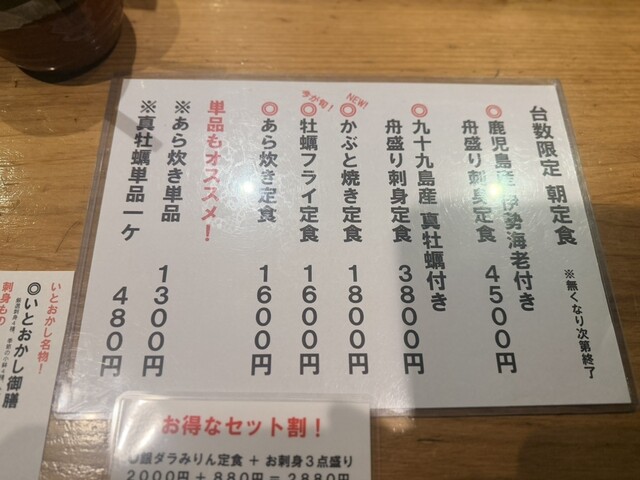 台数限定 朝定食
※無くなり次第終了
◎鹿児島産 伊勢海老付き
舟盛り刺身定食 4500円
◎九十九島産 真牡蠣付き
舟盛り刺身定食 3800円
NEW!
◎かぶと焼き定食 1800円
今が旬!
◎牡蠣フライ定食 1600円
◎あら炊き定食 1600円
単品もオススメ!
※あら炊き単品 1300円
※真牡蠣単品一ケ 480円
いとおかし名物!
◎いとおかし御膳
刺身もり
お得なセット割!
銀ダラみりん定食 + お刺身3点盛り
2000円+880円=2880円